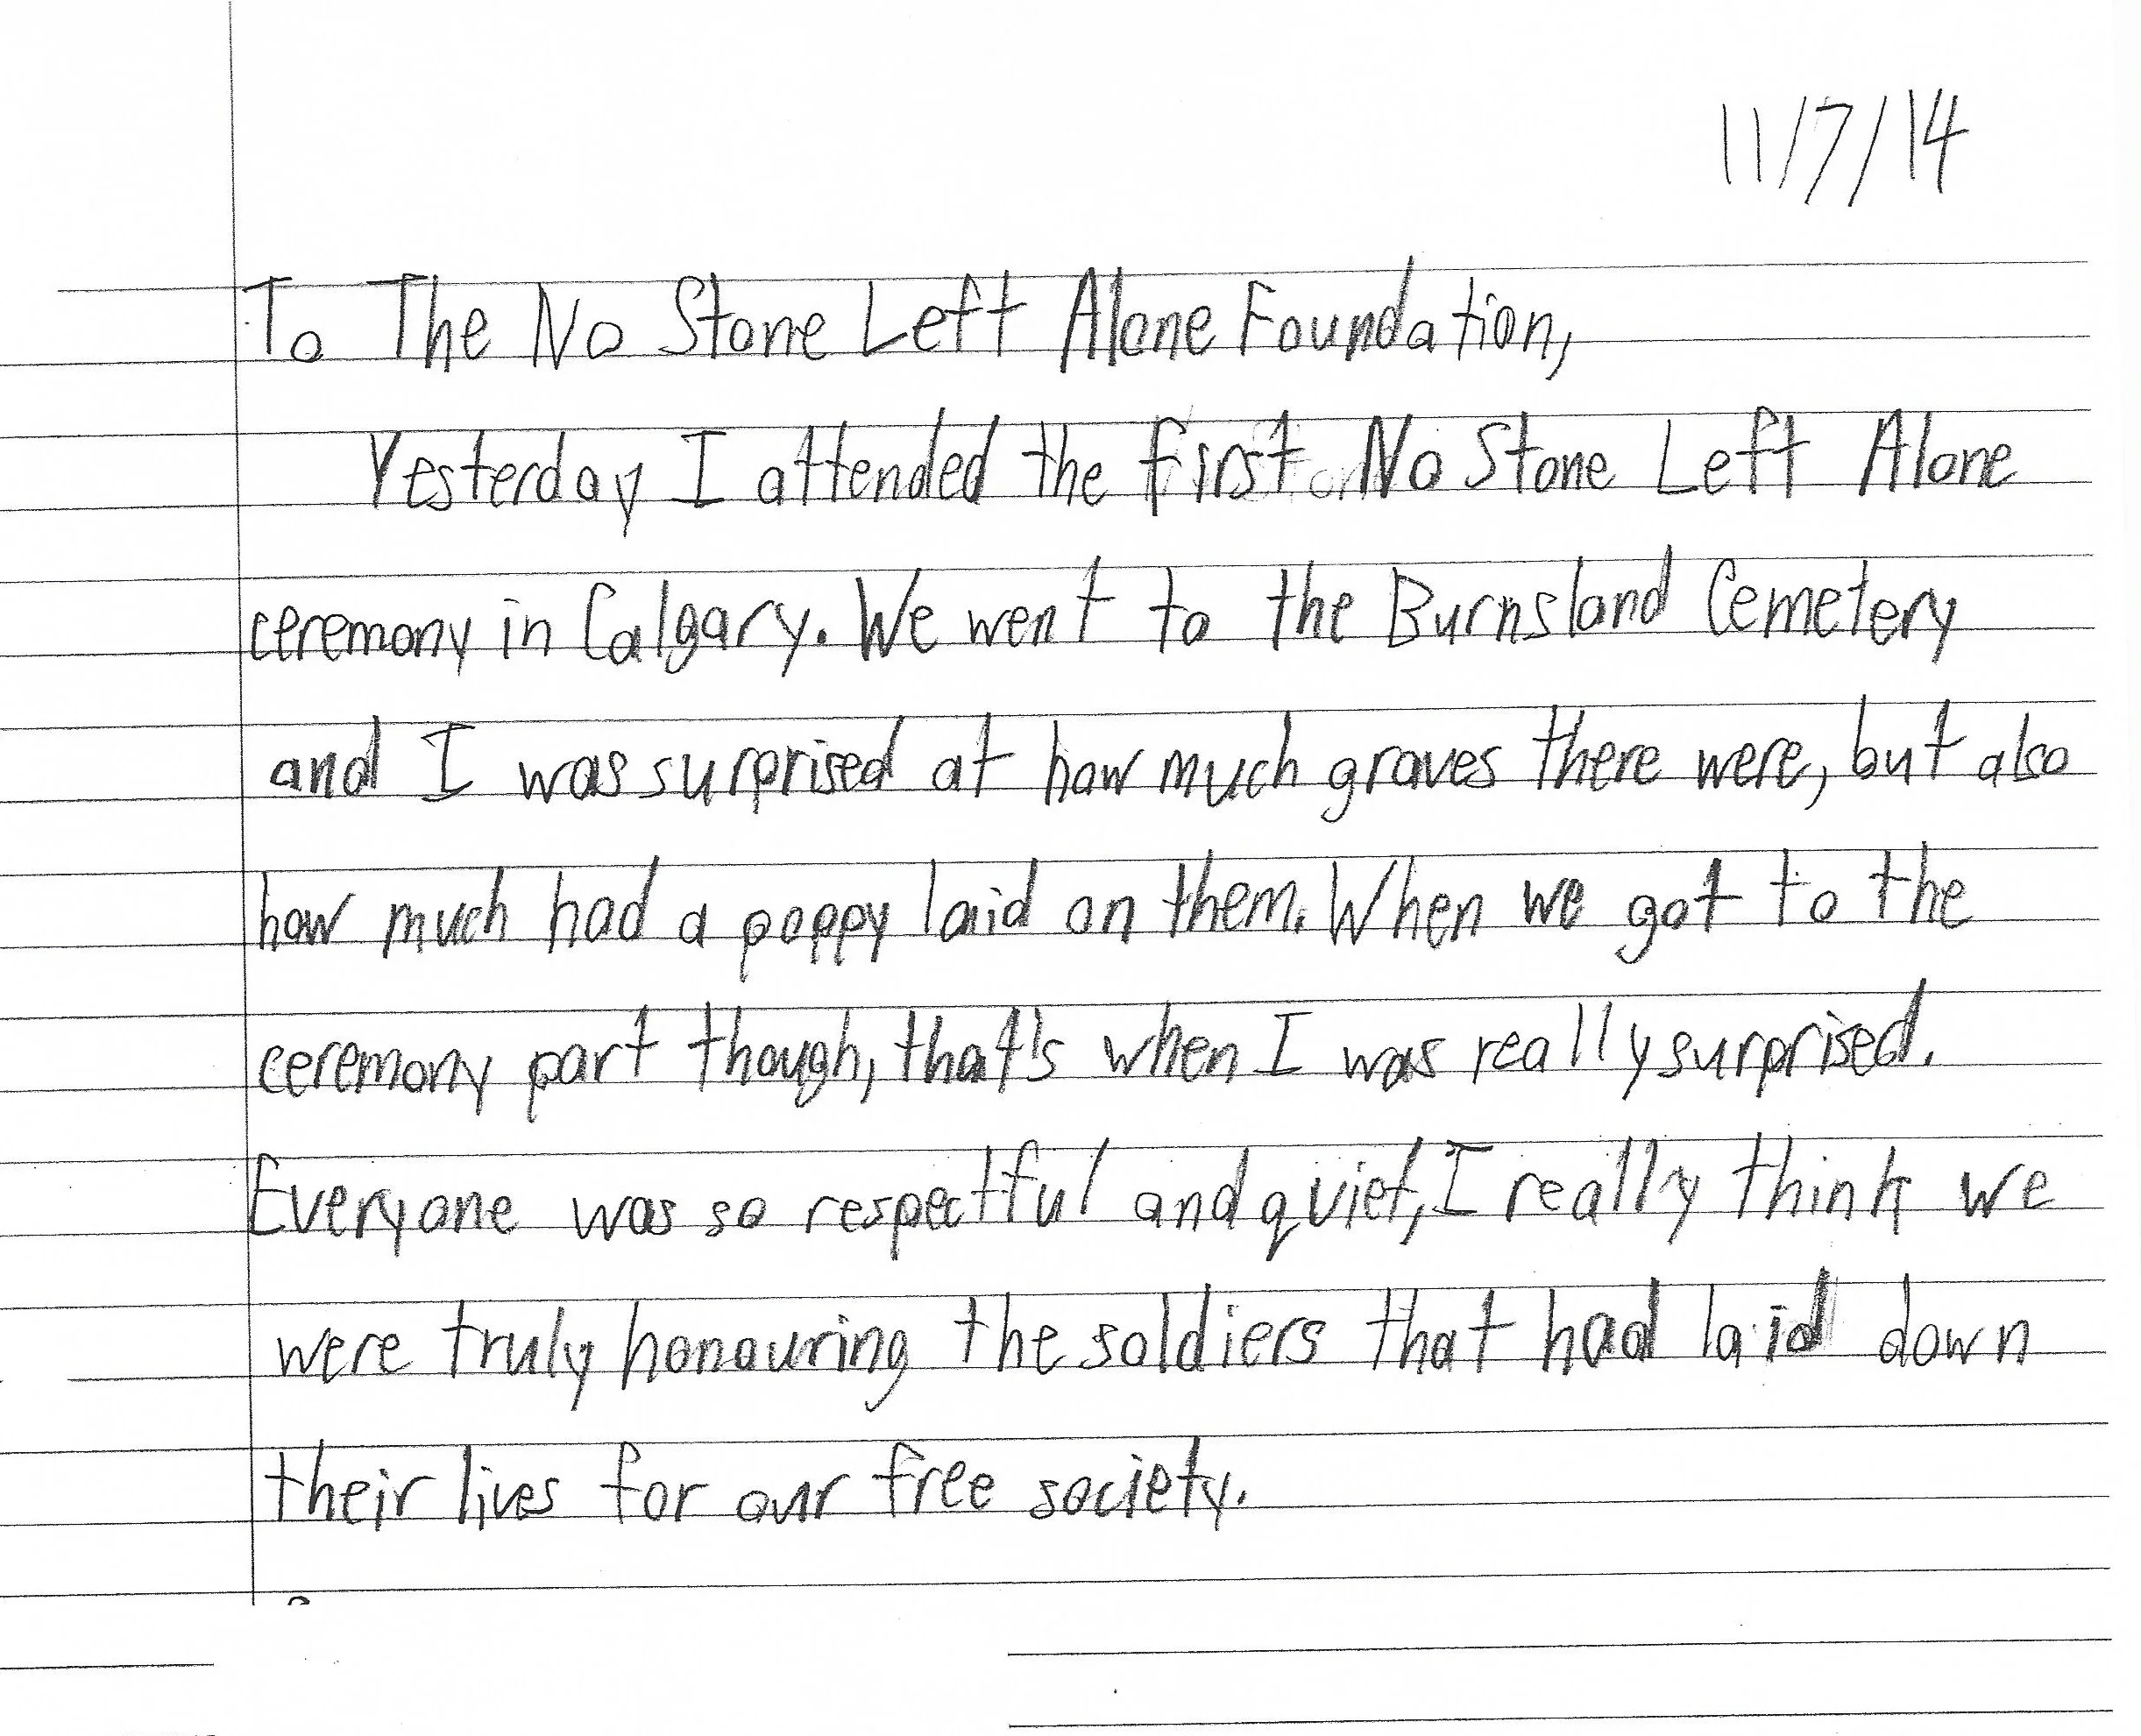 11/7/14
To The No Stone Left Alone Foundation,
Yesterday I attended the first No Stone Left Alone
ceremony in Calgary. We went to the Burnsland Cemetery
and I was surprised at how much graves there were, but also
how much had a poppy laid on them. When we got to the
ceremony part though, that's when I was really surprised.
Everyone was so respectful and quiet, I really think we
were truly honouring the soldiers that had laid down
their lives for our free society.